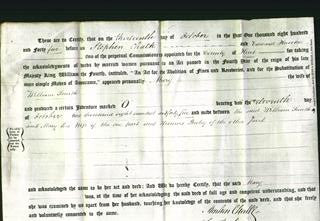 These are to Certify, that on the day of October in the Year One thousand Eight Hundred
and Forty five before us Stephen and
two of the perpetual Commissioners appointed for the County of for taking
the acknowledgments of deeds by married women pursuant to an Act passed in the Fourth Year of the reign of his late
Majesty King William the Fourth, intituled, "An Act for the Abolition of Fines and Recoveries, and for the Substitution of
more simple Modes of Assurance," appeared personally Mary the wife of
William
and produced a certain Indenture marked O bearing date the day
of October one thousand eight hundred and forty five and made between the said William
and Mary his wife of the one part and Thomas of the other part
and acknowledged the same to be her act and deed; And We do hereby Certify, that the said Mary
was, at the time of her acknowledging the said deed of full age and competent understanding, and that
she was examined by us apart from her husband, touching her knowledge of the contents of the said deed, and that she freely
and voluntarily consented to the same.